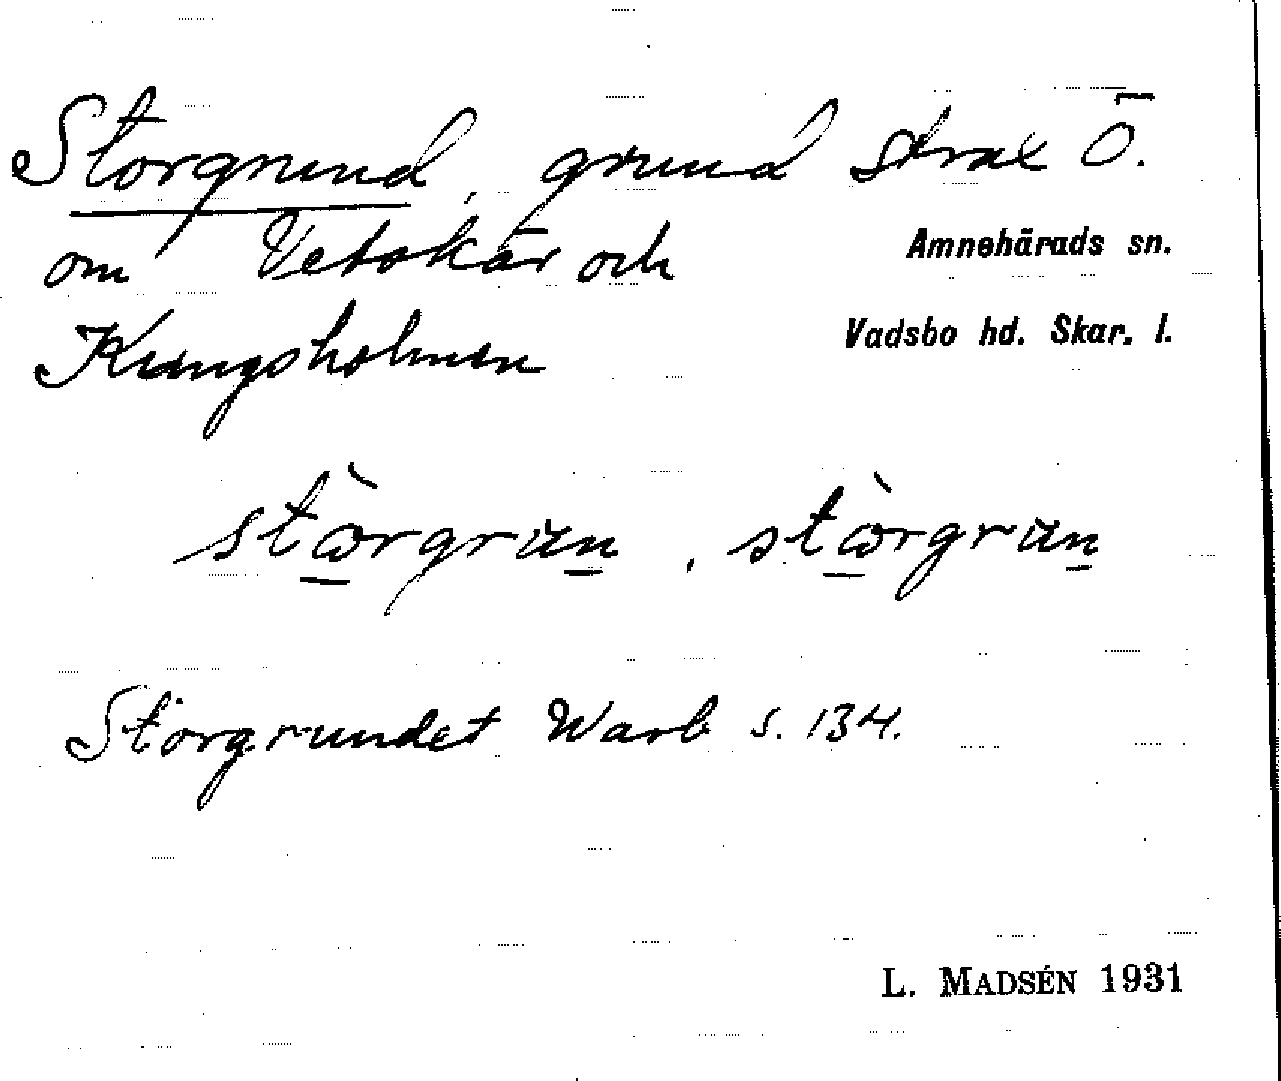 Storgrund, grund strax Ö.
om Vetskär och
Kungsholmen
Amnehärads sn.
Vadsbo hd. Skar. l.
stòrgrun, stòrgrun
Storgrundet Warb s. 134.
L. MADSÉN 1931